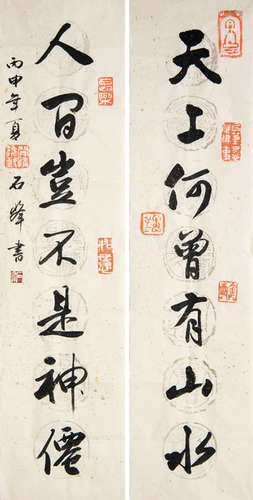 天上何曾有山水
人间岂不是神僊
丙申年夏
石峰书